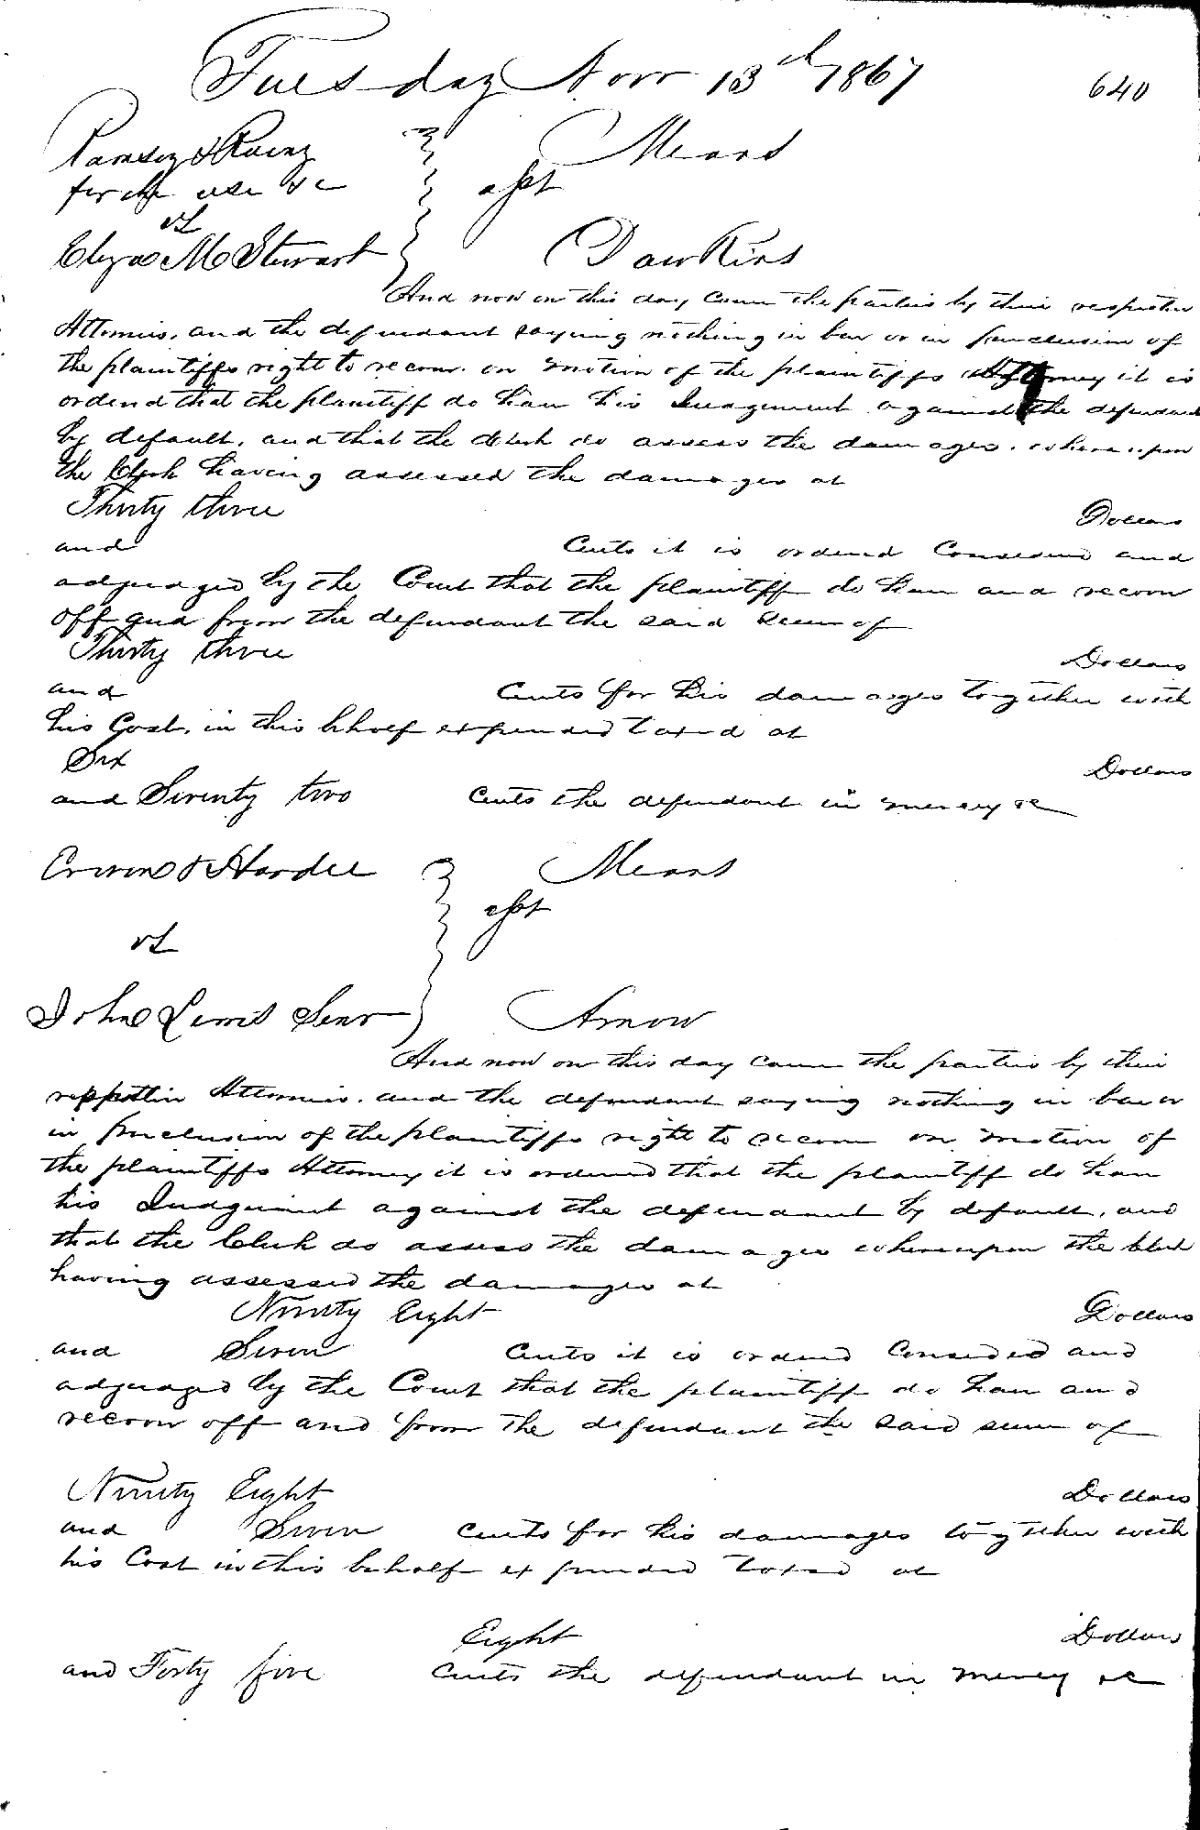 Tuesday Novr 13th 1867 640
Ramsey & Rainy Means
for the use &c asst
vs
Elyas M Stewart Dawkins
And now on this day came the parties by their respective
Attornies, and the defendant saying nothing in bar or in preclusion of
the plaintiffs right to recover. on motion of the plaintiffs Attorney it is
ordered that the plaintiff do have his Judgement against the defendant
by default, and that the Clerk do assess the damages. whereupon
the Clerk having assessed the damages at
Thirty three Dollars
and Cents it is ordered Considered and
adjudged by the Court that the plaintiff do have and recover
off and from the defendant the said sum of
Thirty three Dollars
and Cents for his damages together with
his Cost, in this behalf expended taxed at
Six Dollars
and Seventy two Cents the defendant in mercy &c
Erwin & Hardee Means
asst
vs
John Lewis Senr Arnow
And now on this day came the parties by their
respective Attornies. and the defendant saying nothing in bar or
in preclusion of the plaintiffs right to recover on motion of
the plaintiffs Attorney it is ordered that the plaintiff do have
his Judgment against the defendant by default, and
that the Clerk do assess the damages whereupon the Clerk
having assessed the damages at
Ninety Eight Dollars
and Seven Cents it is ordered Considered and
adjudged by the Court that the plaintiff do have and
recover off and from the defendant the said sum of
Ninety Eight Dollars
and Seven Cents for his damages together with
his Cost in this behalf expended taxed at
Eight Dollars
and Forty five Cents the defendant in mercy &c